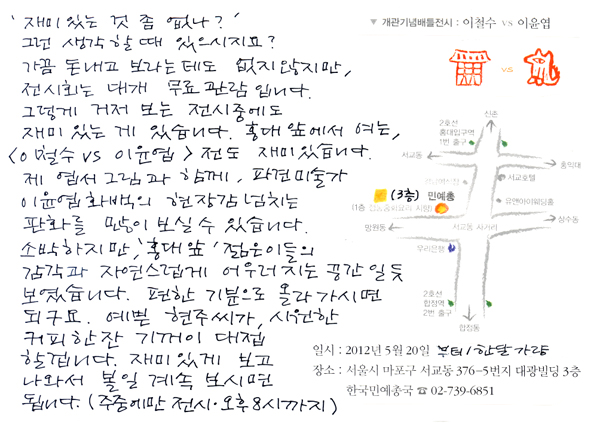 '재미 있는 것 좀 없나?'
그런 생각 할 때 있으시지요?
가끔 돈내고 보라는데도 없지않지만,
전시회는 대개 무료관람입니다.
그렇게 거저 보는 전시중에도
재미 있는 게 있습니다. 홍대 앞에서 여는,
<이철수 vs 이윤엽>전도 재미있습니다.
제 엽서그림과 함께, 파견미술가
이윤엽화백의 현장감 넘치는
판화를 많이 보실 수 있습니다.
소박하지만, '홍대앞' 젊은이들의
감각과 자연스럽게 어우러지는 공간일듯
보였습니다. 편한 기분으로 올라가시면
되구요. 예쁜 현주씨가, 시원한
커피한잔 기꺼이 대접
할겁니다. 재미있게 보고
나와서 볼일 계속 보시면
됩니다. (주중에만 전시·오후8시까지)
▼ 개관기념배틀전시 : 이철수 vs 이윤엽
v.s
신촌
2호선
홍대입구역
1번 출구
서교동
홍익대
서교호텔
(3층) 민예총
(1층
유앤아이웨딩홀
망원동
서교동 사거리
상수동
우리은행
2호선
합정역
2번 출구
합정동
일시 : 2012년 5월 20일 부터/한달가량
장소 : 서울시 마포구 서교동 376-5번지 대광빌딩 3층
한국민예총국 ☎ 02-739-6851